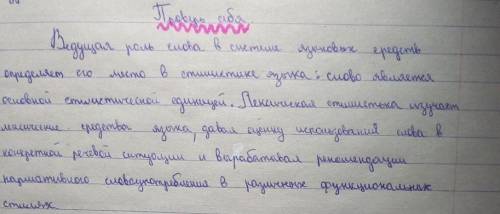 Проверь себя.
Ведущая роль слова в системе языковых средств
определяет его место в стилистике языка: слово является
основной стилистической единицей. Лексическая стилистика изучает
лексические средства языка, давая оценку использования слова в
конкретной речевой ситуации и вырабатывая рекомендации
нормативного словоупотребления в различных функциональных
стилях.